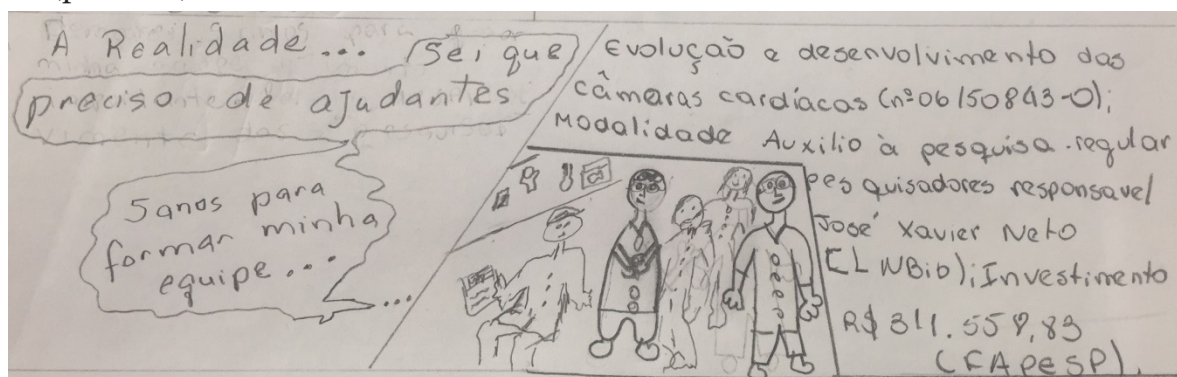 A Realidade...
Sei que
preciso de ajudantes
5 anos para
formar minha
equipe...
...
Evolução e desenvolvimento das
câmaras cardíacas (nº06/50843-0);
Modalidade Auxilio à pesquisa-regular
pesquisadores responsavel
José Xavier Neto
(LNBio); Investimento
R$ 311.558,83
(FAPESP).